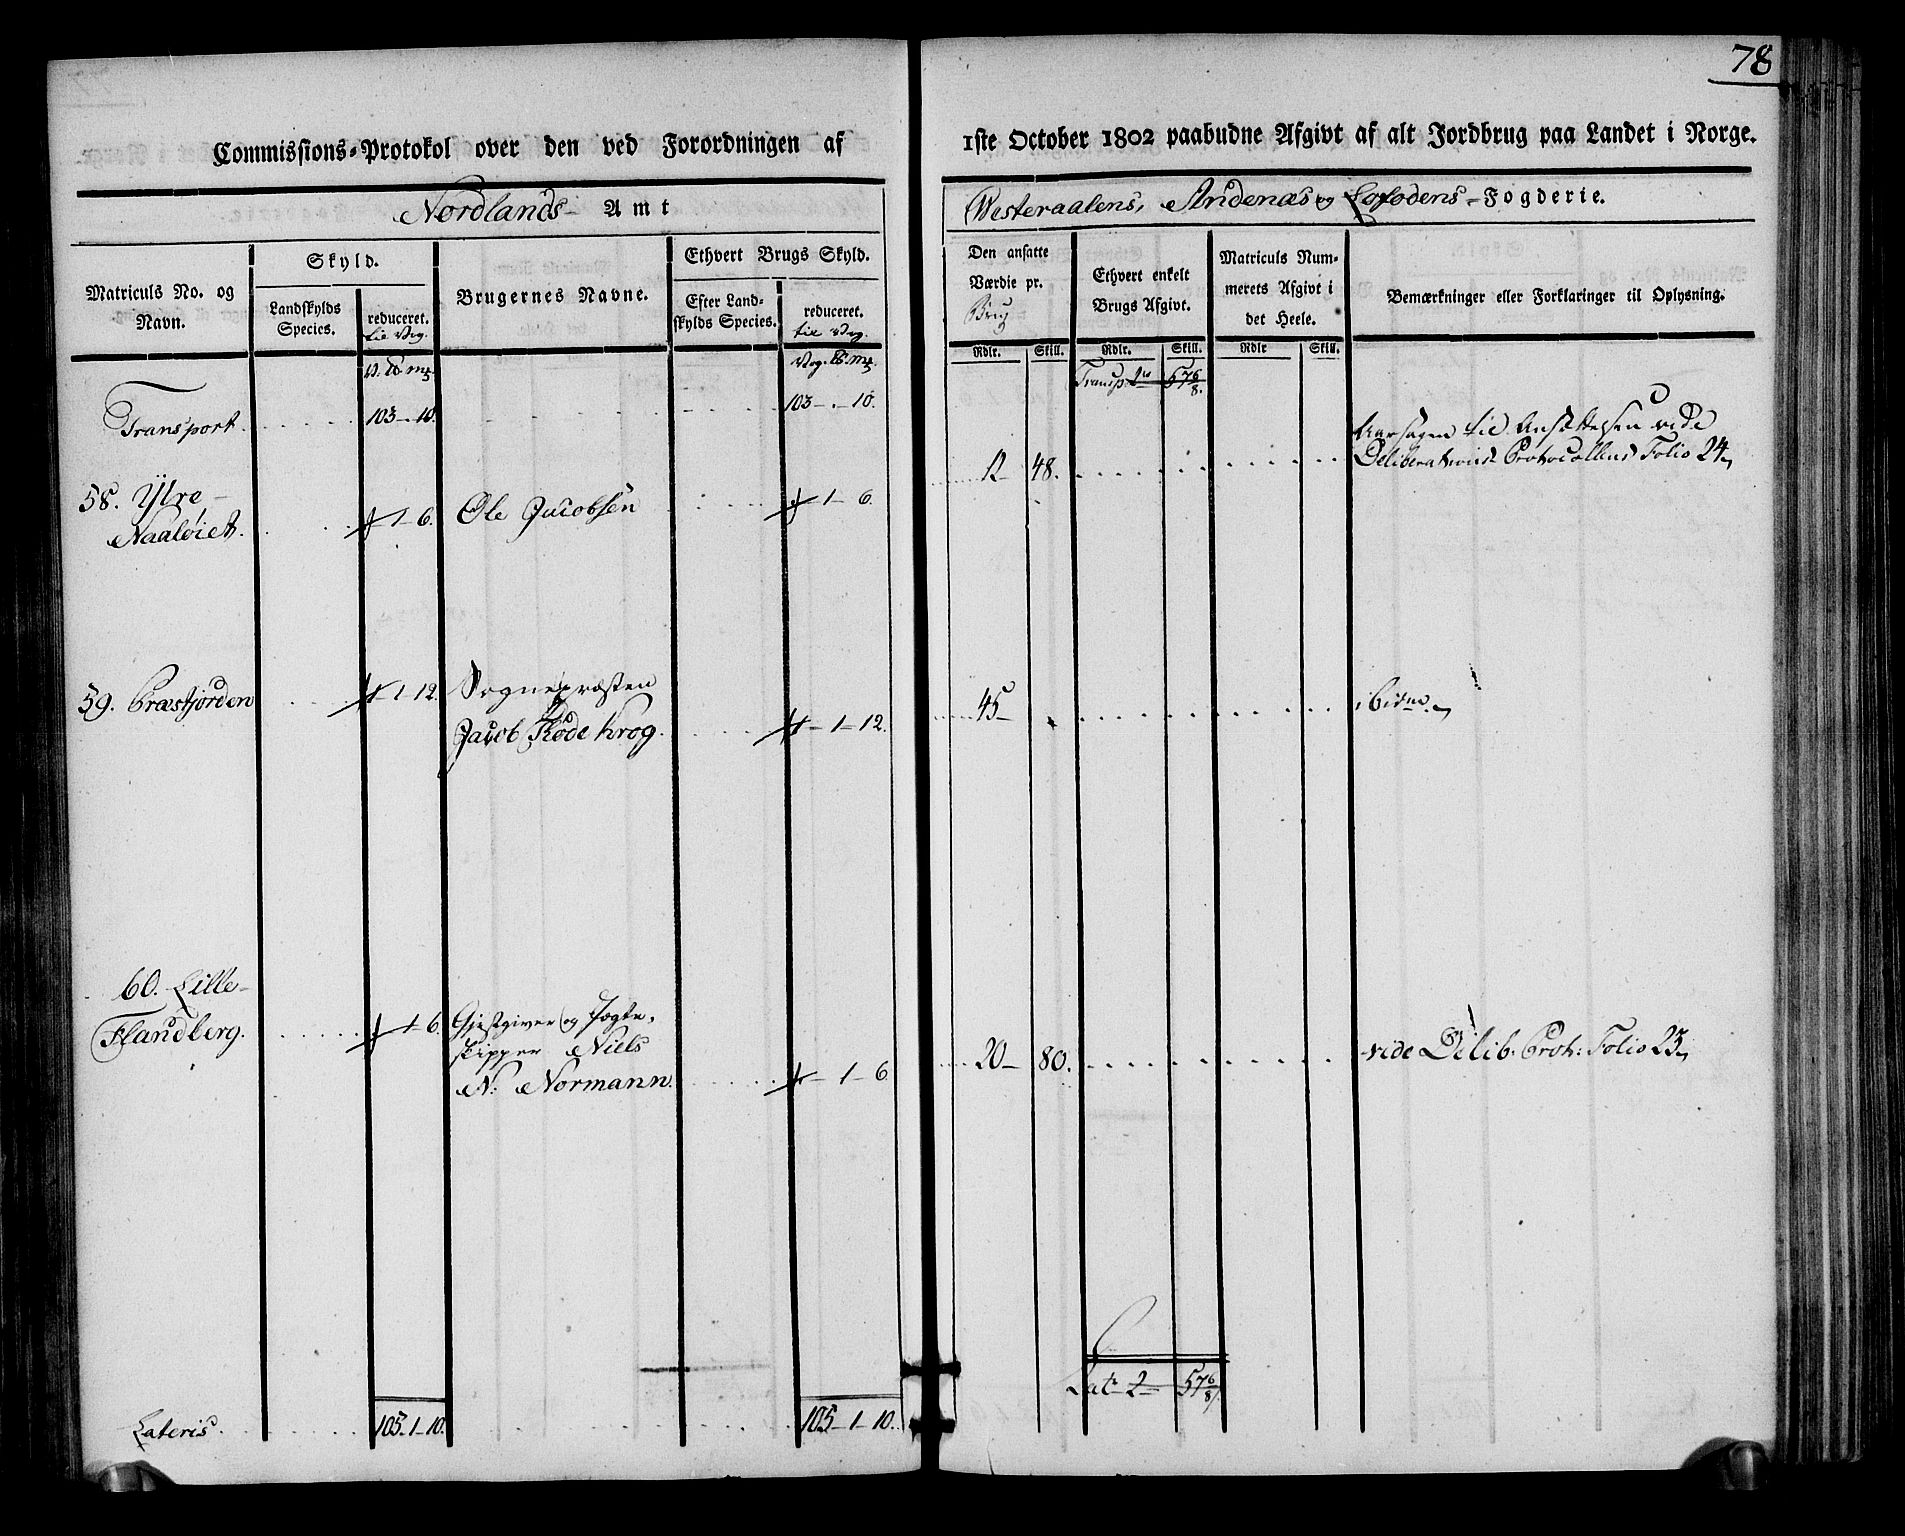 78
Commissions-Protokol over den ved Forordningen af
1ste October 1802 paabudne Afgivt af alt Jordbrug paa Landet i Norge.
Nordlands- Amt
Westeraalens, Andenæs og Lofodens-Fogderie.
Matriculs No. og
Navn.
Skyld.
Landskylds
Species.
reduceret.
til Vog.
Brugernes Navne.
Ethvert Brugs Skyld.
Efter Land-
skylds Species.
reduceret.
til Vog.
Den ansatte
Værdie pr.
Brug
Ethvert enkelt
Brugs Afgivt.
Matriculs Num-
merets Afgivt i
det Heele.
Bemærkninger eller Forklaringer til Oplysning.
Rdlr. Skill. Rdlr. Skill. Rdlr Skill.
Transport. 103 - . 10. 103 - . - 10.
Transp. 2 57 6/8.
58. Ytre-
Naaløiet. 1 - 6. Ole Jacobsen 1 - 6. 12 - 48.
Aarsagen til Ansættelsen vide
Deliberations Protocollens Folio 24
59. Præstfjorden - 1 - 12. Sognepræsten
Jacob Røde Krog. - 1 - 12. 45 - ibidm.
60. Lille-
Flandberg. 1 6. Gjestgiver og Jægte-
skipper Niels
N: Normann. - 1 - 6. 20 - 80. vide Delib. Prot: Folio 25
Lat 2 - 57 6/8.
Lateris. 105 - 1 - 10. 105 - 1 - 10.